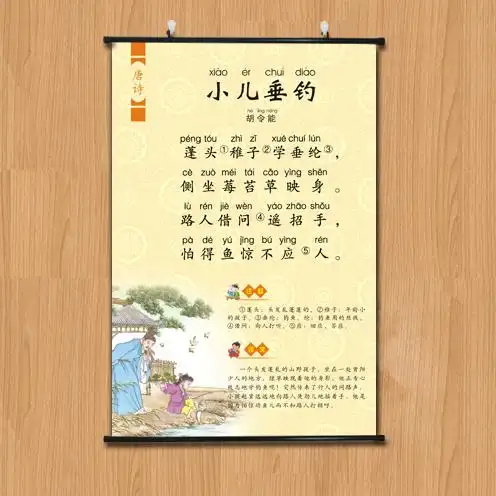 唐诗
xiǎo ér chuí diào
小儿垂钓
hú lìng néng
胡令能
péng tóu zhì zǐ xué chuí lún
蓬头①稚子②学垂纶③,
cè zuò méi tái cǎo yìng shēn
侧坐莓苔草映身。
lù rén jiè wèn yáo zhāo shǒu
路人借问④遥招手,
pà dé yú jīng bú yìng rén
怕得鱼惊不应⑤人。
注释
①蓬头:头发乱蓬蓬的。②稚子:年龄小
的孩子。③垂纶:钓鱼。纶:钓鱼用的丝线。
④借问:向人打听。⑤应:回应,答应。
译文
一个头发蓬乱的山野孩子,坐在一处背阳
少人的地方,绿草映现着他的身影。他正专心
致志地学钓鱼呢!突然传来了行人的问路声,
小孩赶紧远远地向路人使劲儿地摇着手。他是
因为怕惊动鱼儿而不和路人打招呼。